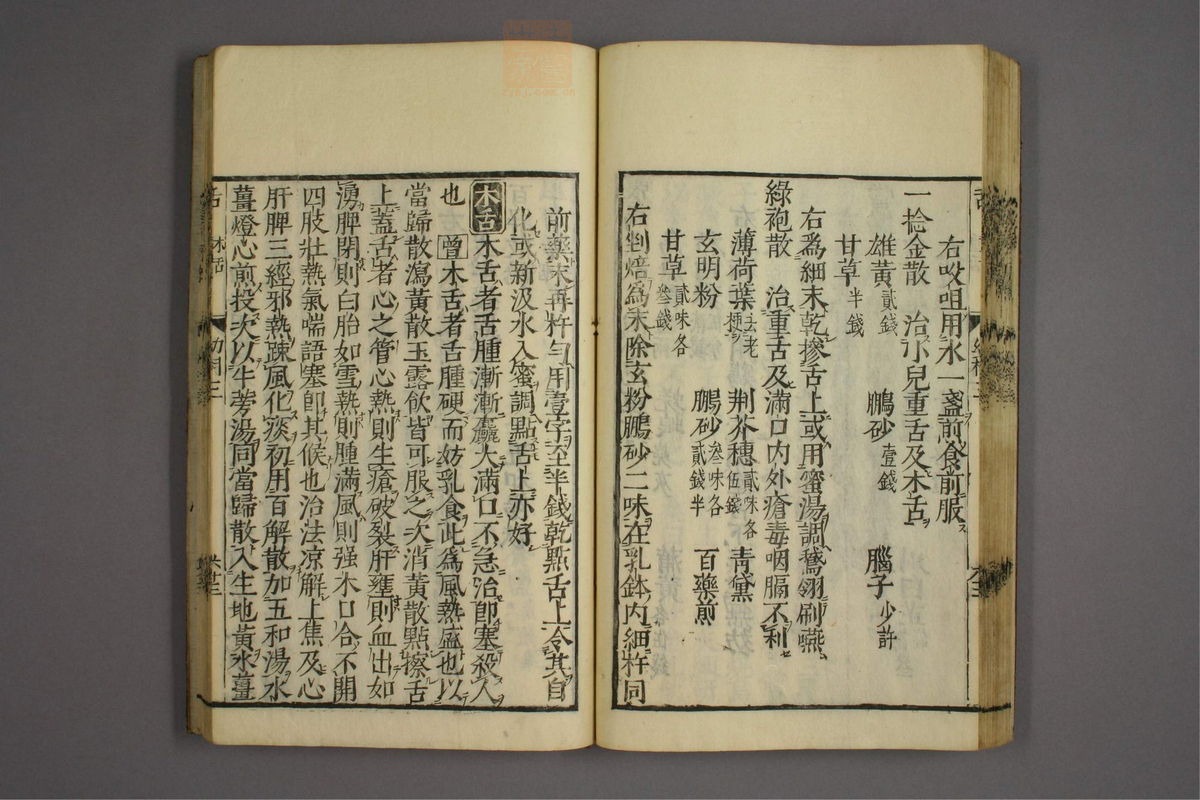 右㕮咀用水一盞煎食前服
一捻金散 治小兒重舌及木舌
雄黄貳錢 鵬砂壹錢 腦子少許
甘草半錢
右爲細末乾摻舌上或用蜜湯調鵞翎刷嚥
綠袍散 治重舌及滿口内外瘡毒咽膈不利
薄荷葉去老梗 荆芥穗貳味各伍錢 青黛
玄明粉 鵬砂叁味各貳錢半 百藥煎
甘草貳味各叁錢
右剉焙爲末除玄粉鵬砂二味在乳鉢内細杵同
前藥末再杵勻用壹字至半錢乾㸃舌上令其自
化或新汲水入蜜調㸃舌上亦好
木舌 木舌者舌腫漸漸麤大滿口不急治即塞殺人
也 曾 木舌者舌腫硬而妨乳食此爲風熱盛也以
當歸散瀉黄散玉露飲皆可服之次消黄散㸃擦舌
上蓋舌者心之管心熱則生瘡破裂肝壅則血出如
湧脾閉則白胎如雪熱則腫滿風則强木口合不開
四肢壯熱氣喘語塞即其候也治法凉解上焦及心
肝脾三經邪熱疎風化痰初用百解散加五和湯水
薑燈心煎投次以牛蒡湯同當歸散入生地黄水薑